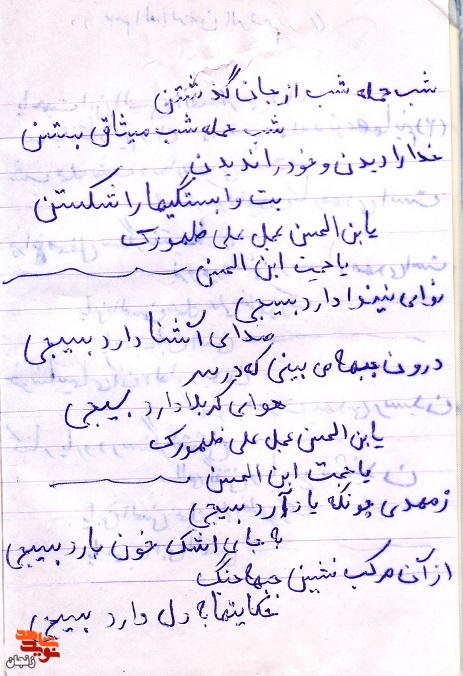 شب حمله شب از جان گذشتن
شب حمله شب میثاق بستن
خدا را دیدن و خود را ندیدن
بت وابستگیها را شکستن
یابن الحسن عجل علی ظهورک
یا حجت ابن الحسن
نوای نینوا دارد بسیجی
صدای آشنا دارد بسیجی
درون جبهه می بینی که در سر
هوای کربلا دارد بسیجی
یابن الحسن عجل علی ظهورک
یا حجت ابن الحسن
ز مهدی چونکه یاد آرد بسیجی
به جای اشک خون بارد بسیجی
از آن مرکب نشین جبهه جنگ
حکایتها به دل دارد بسیجی
نوید شاهد
زنجان